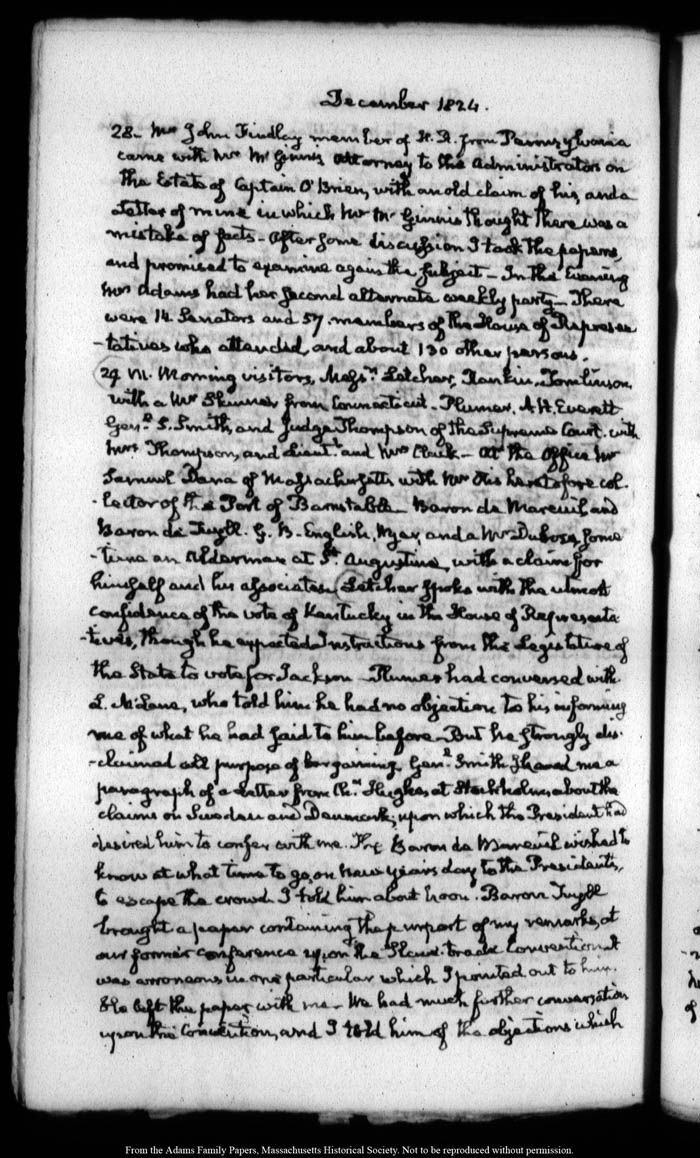 December 1824.
28. Mr John Findlay member of H. R. from Pennsylvania
came with Mr McGinnis Attorney to the Administrators on
the Estate of Captain O'Brien, with an old claim of his, and a
Letter of mine in which Mr McGinnis thought there was a
mistake of facts - After some discussion I took the papers,
and promised to examine again the subject - In the Evening
Mrs Adams had her second alternate weekly party - There
were 14 Senators and 57 members of the House of Represen
-tatives who attended, and about 130 other persons.
29 Morning visitors, Messrs Letcher, Rankin, Tomlinson,
with a Mr Skinner from Connecticut - Plumer, A H. Everett
Genl S. Smith, and Judge Thompson of the Supreme Court with
Mrs Thompson, and Lieutt and Mrs Clack - At the Office Mr
Samuel Dana of Massachusetts with Mr Otis heretofore col-
-lector of the Port of Barnstable - Baron de Mareuil and
Baron de Tuyll. G. B. English, Wyer, and a Mr Dubose some
-time an Alderman at St Augustine, with a claim for
himself and his associates. Letcher spoke with the utmost
confidence of the vote of Kentucky in the House of Representa
-tives, though he expected Instructions from the Legislature of
the State to vote for Jackson - Plumer had conversed with
L. McLane, who told him he had no objection to his informing
me of what he had said to him before - But he strongly dis-
-claimed all purpose of bargaining. Genl Smith shewed me a
paragraph of a Letter from Chr Hughes at Stockholm, about the
claims on Sweden and Denmark; upon which the President had
desired him to confer with me. The Baron de Mareuil wished to
know at what time to go, on New years day to the Presidents,
to escape the crowd. I told him about Noon. Baron Tuyll
brought a paper containing the purport of my remarks, at
our former conference upon the Slave-trade Convention it
was erroneous in one particular which I pointed out to him.
He left the paper with me - We had much further conversation
upon this Convention, and I told him of the objections which
From the Adams Family Papers, Massachusetts Historical Society. Not to be reproduced without permission.